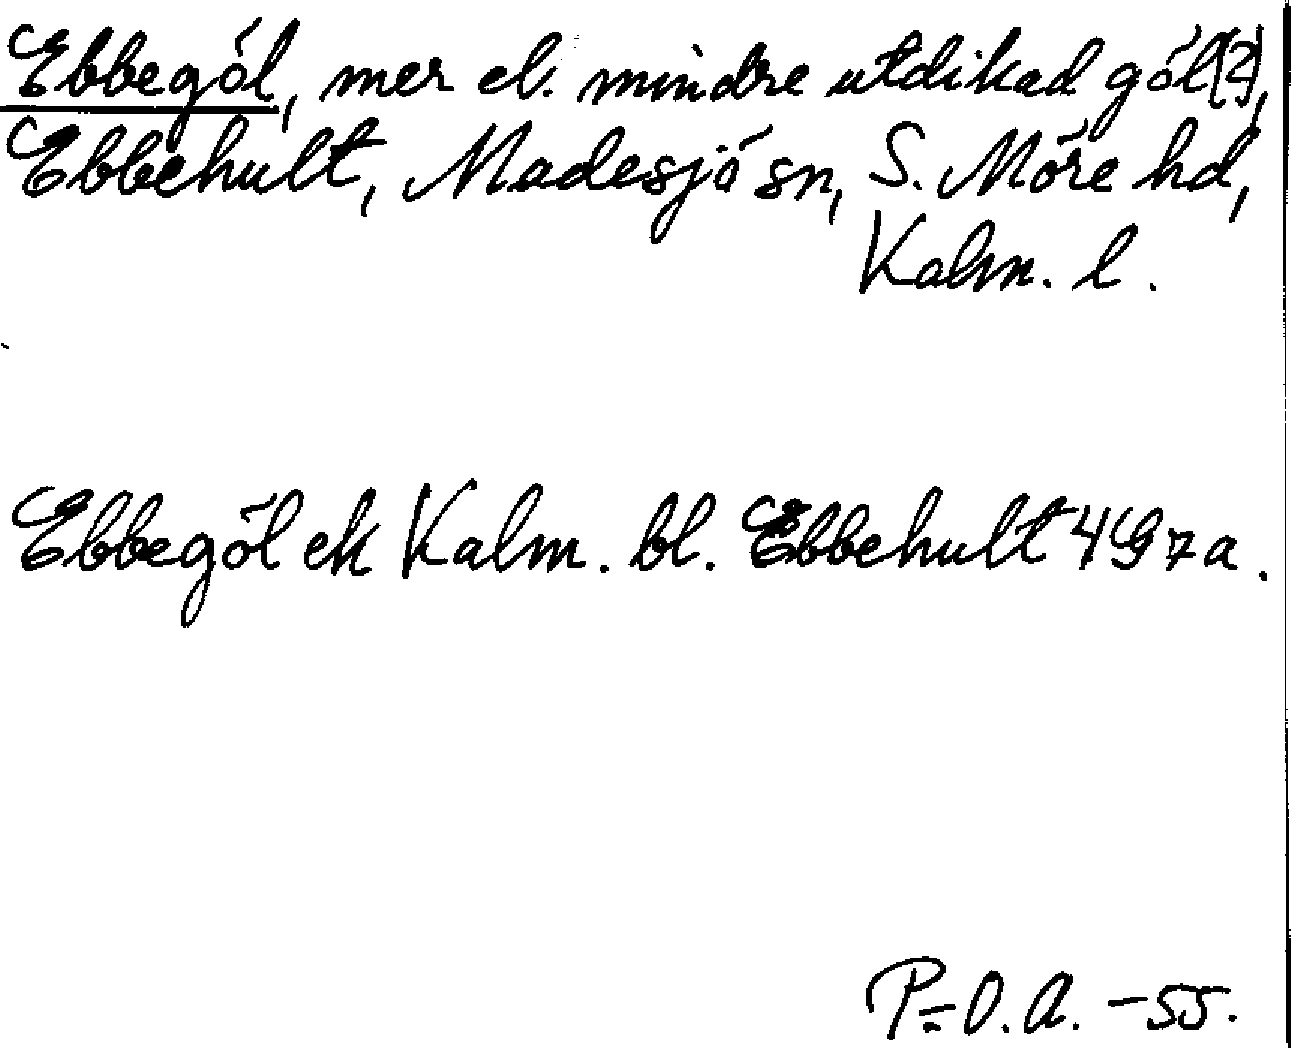 Ebbegöl, mer el. mindre utdikad göl[?],
Ebbehult, Madesjö sn, S. Möre hd,
Kalm. l.
Ebbegöl ek Kalm. bl. Ebbehult 4G7a.
P-O.A. -55.